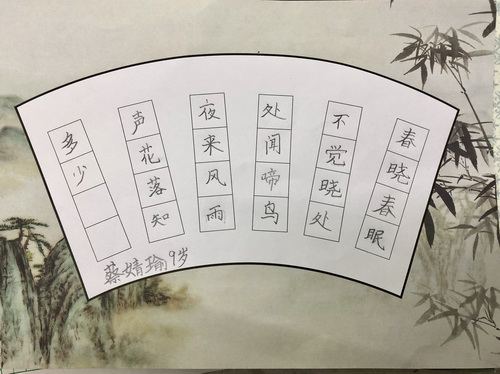 春晓春眠
不觉晓处
处闻啼鸟
夜来风雨
声花落知
多少
蔡婧瑜9岁